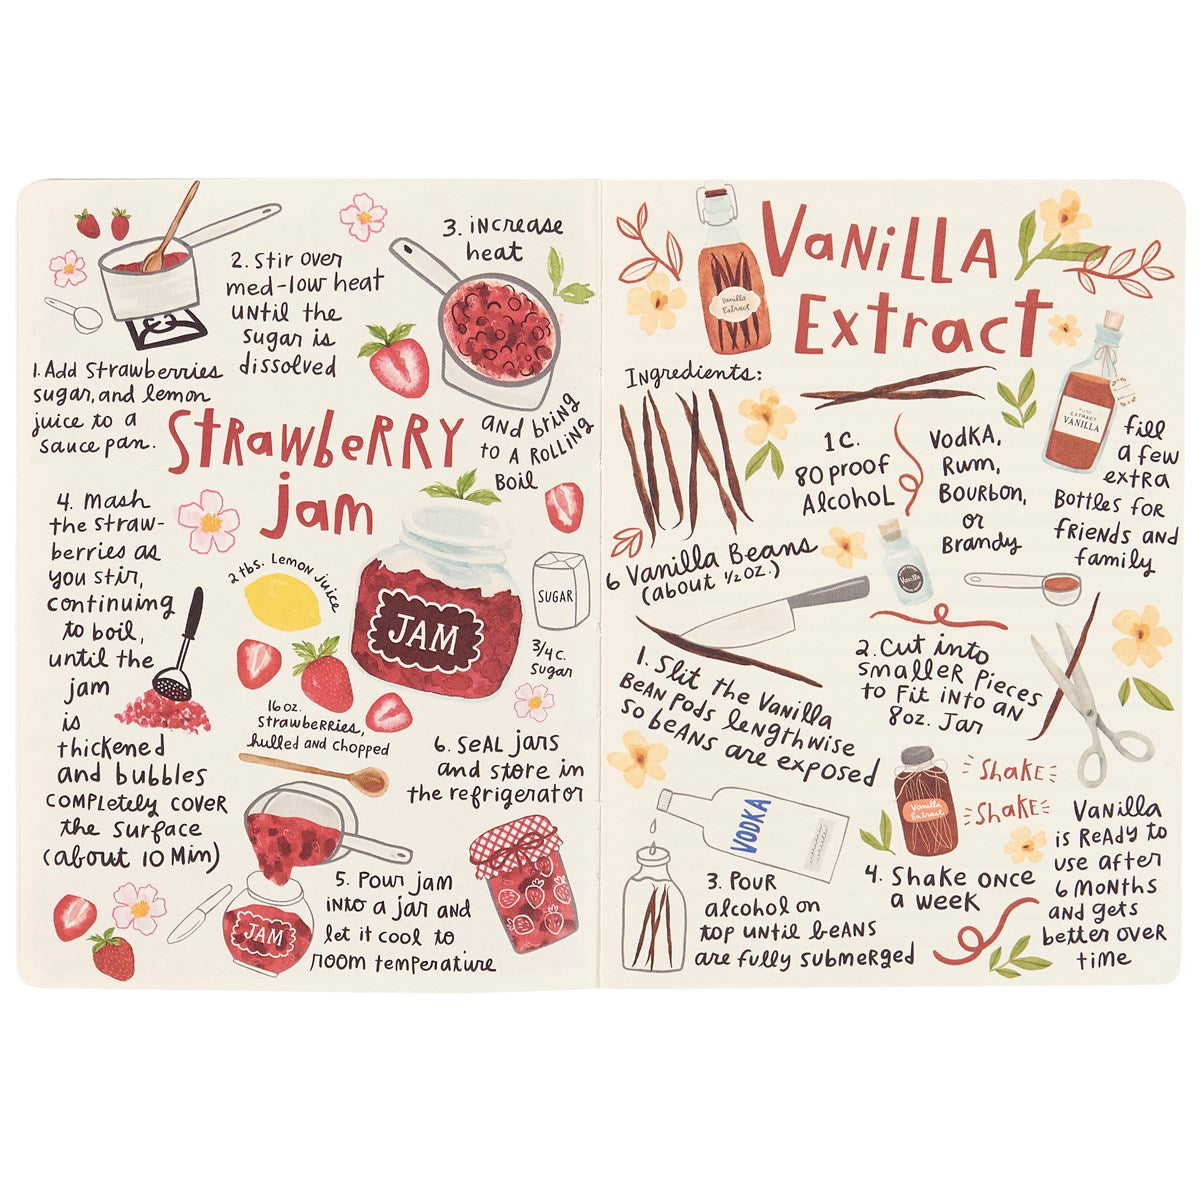 Strawberry
jam
1. Add Strawberries
sugar, and lemon
juice to a
sauce pan.
2. Stir over
med-low heat
until the
sugar is
dissolved
3. increase
heat
and bring
to a rolling
boil
4. Mash
the straw-
berries as
you stir,
continuing
to boil,
until the
jam
is
thickened
and bubbles
completely cover
the surface
(about 10 min)
2 tbs. Lemon Juice
JAM
SUGAR
3/4 c.
sugar
16 oz.
Strawberries,
hulled and chopped
6. Seal jars
and store in
the refrigerator
5. Pour jam
into a jar and
let it cool to
room temperature
JAM
Vanilla
Extract
Vanilla
Extract
Ingredients:
PURE
EXTRACT
VANILLA
1 c.
80 proof
Alcohol
Vodka,
Rum,
Bourbon,
or
Brandy
fill
a few
extra
Bottles for
friends and
family
6 Vanilla Beans
(about 1/2 oz.)
Vanilla
1. Slit the Vanilla
Bean pods lengthwise
so beans are exposed
2. Cut into
smaller pieces
to fit into an
8oz. Jar
VODKA
Vanilla
Extract
Shake
Shake
3. Pour
alcohol on
top until beans
are fully submerged
4. Shake once
a week
Vanilla
is Ready to
use after
6 months
and gets
better over
time